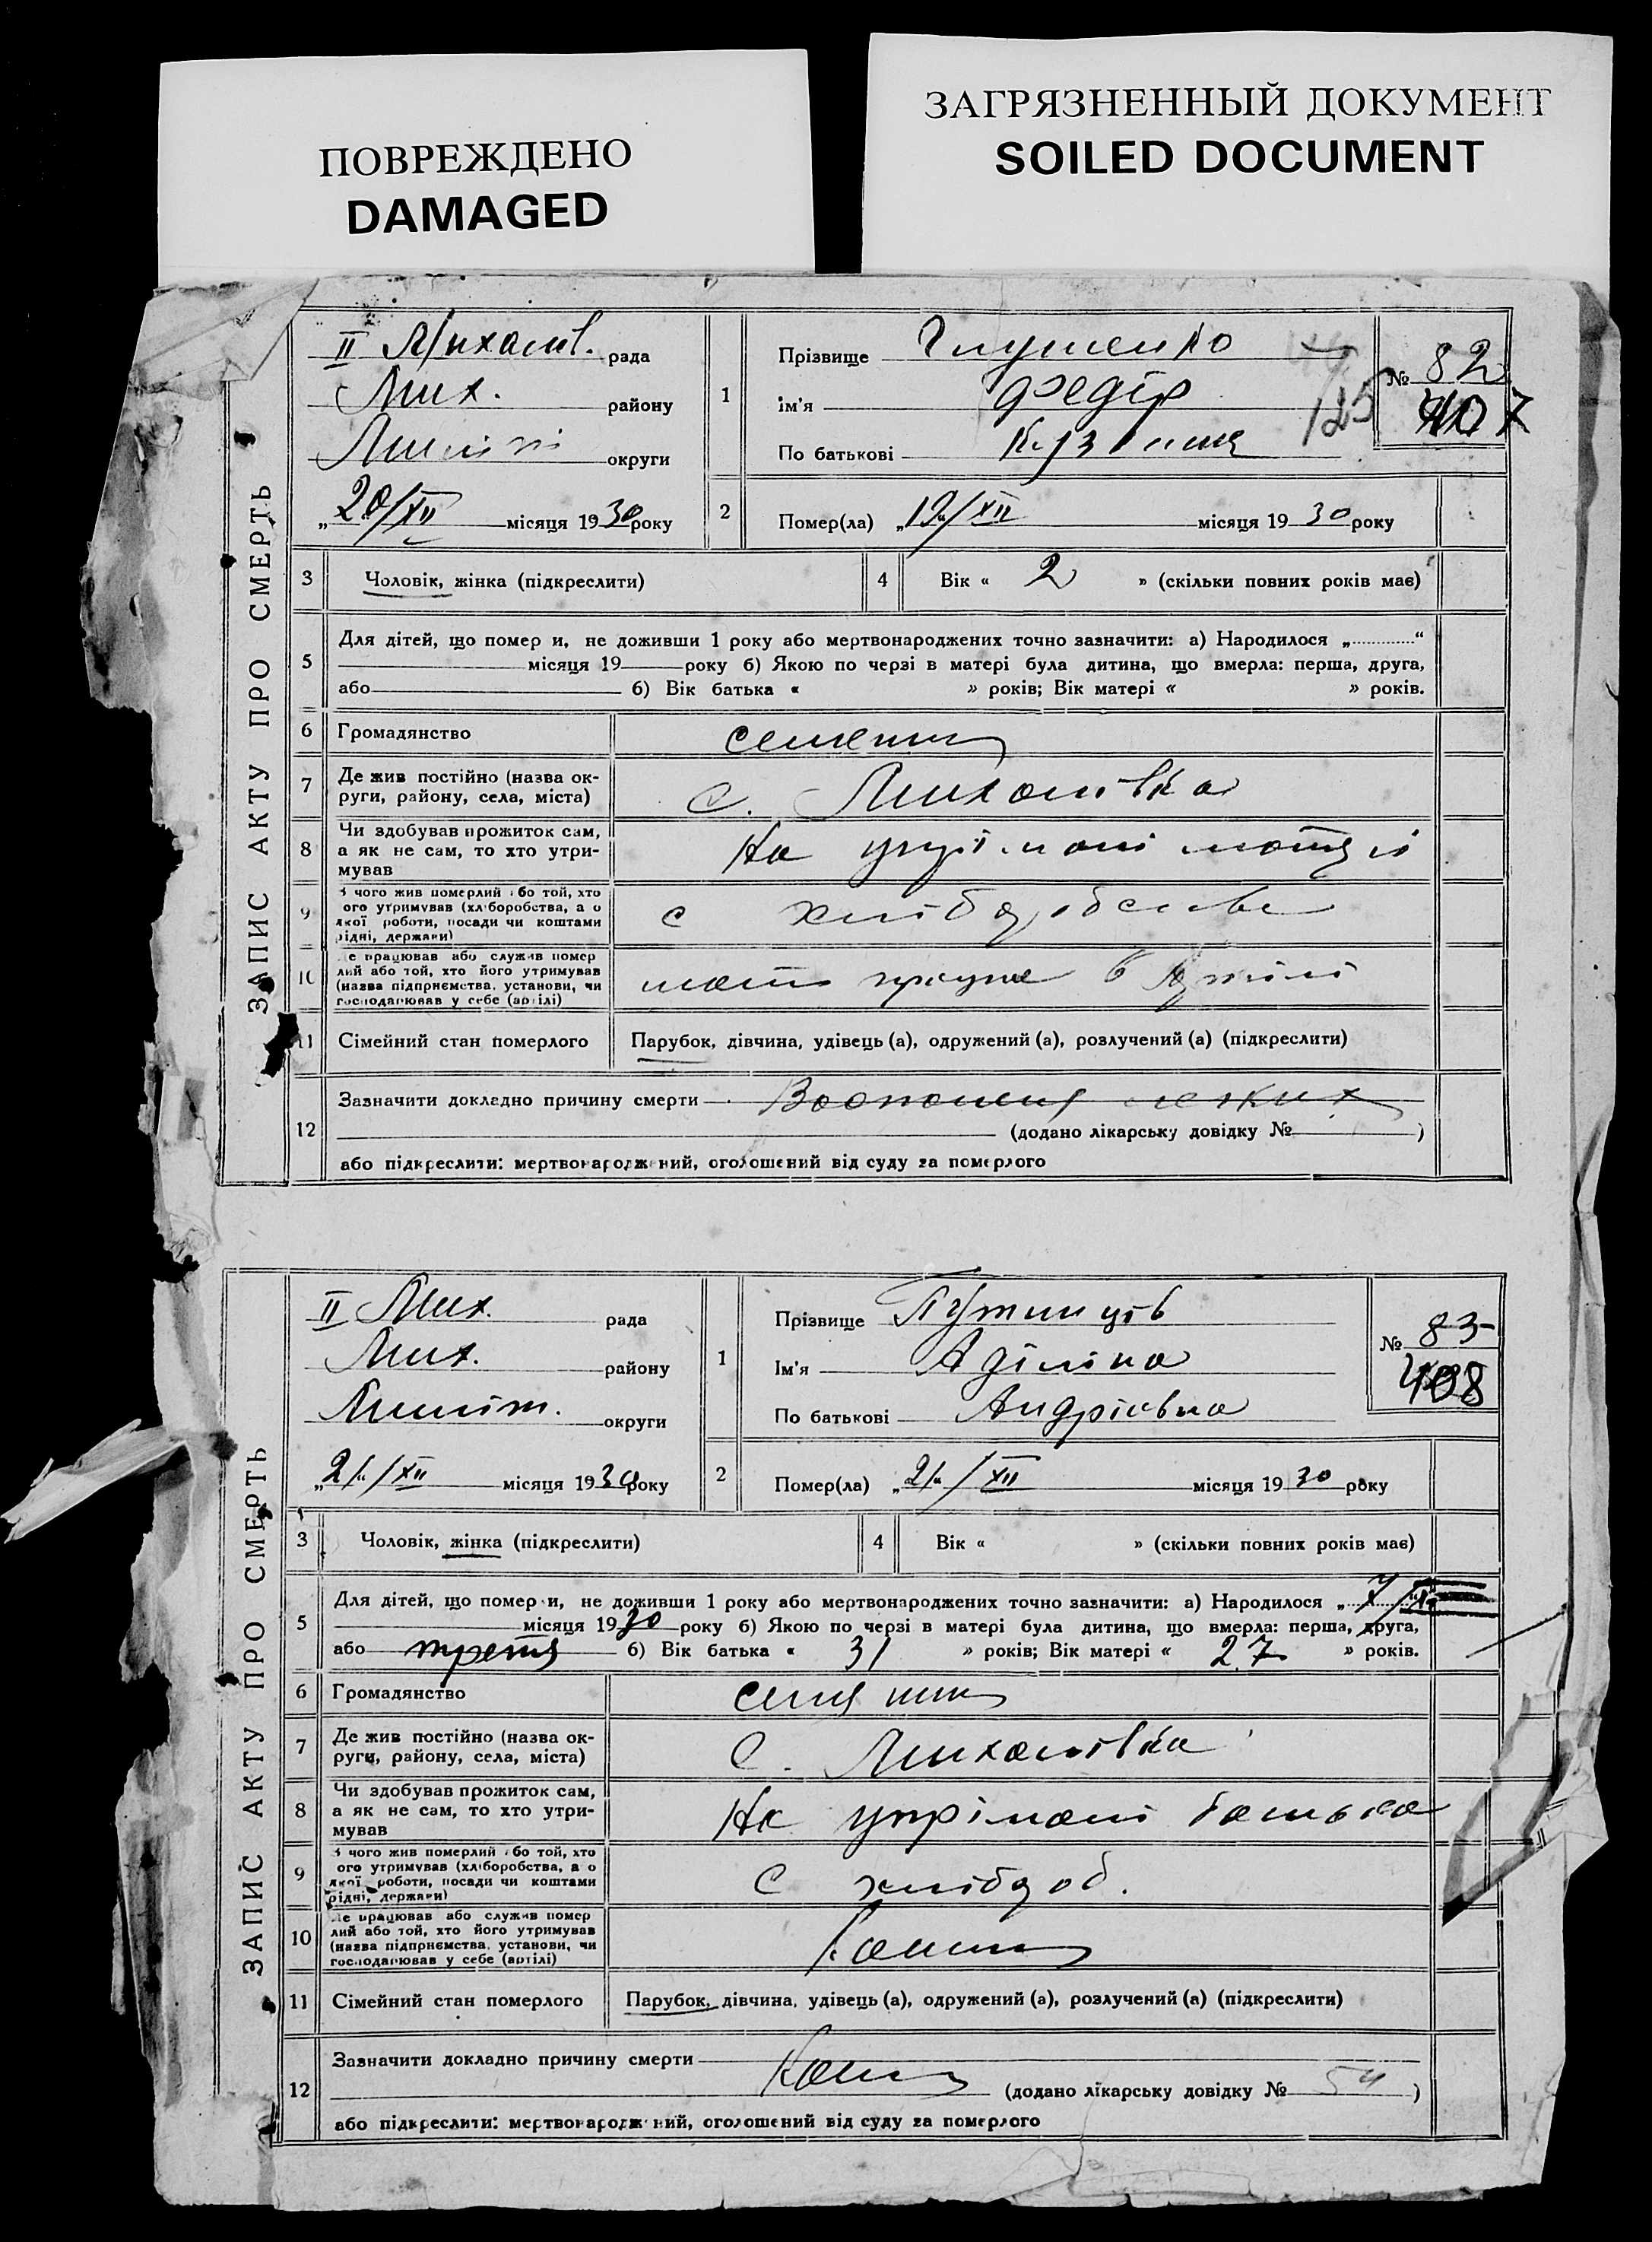 ПОВРЕЖДЕНО
DAMAGED
ЗАГРЯЗНЕННЫЙ ДОКУМЕНТ
SOILED DOCUMENT
ЗАПИС АКТУ ПРО СМЕРТЬ
II Михайлів. рада
Мих. району
округи
„20/XII місяця 1930 року
1
Прізвище Глущенко
ім'я Федір
По батькові
№ 82
407
125
2
Помер(ла) „19/XII місяця 1930 року
3 Чоловік, жінка (підкреслити)
4 Вік « 2 » (скільки повних років має)
5 Для дітей, що помер и, не доживши 1 року або мертвонароджених точно зазначити: а) Народилося „ “
місяця 19 року б) Якою по черзі в матері була дитина, що вмерла: перша, друга,
або б) Вік батька « » років; Вік матері « » років.
6 Громадянство
7 Де жив постійно (назва ок-
руги, району, села, міста) с. Михайлівка
8 Чи здобував прожиток сам,
а як не сам, то хто утри-
мував На матері
9 З чого жив померлий або той, хто
ого утримував (хліборобства, а о
якої роботи, посади чи коштами
рідні, держави) с
10 Де працював або служив помер
лий або той, хто його утримував
(назва підприємства, установи, чи
господарював у себе (артілі) мати працює в Артілі
11 Сімейний стан померлого Парубок, дівчина, удівець (а), одружений (а), розлучений (а) (підкреслити)
12 Зазначити докладно причину смерти легких
(додано лікарську довідку № )
або підкреслити: мертвонароджений, оголошений від суду за померлого
ЗАПИС АКТУ ПРО СМЕРТЬ
II Мих. рада
Мих. району
округи
„21/XII місяця 1930 року
1
Прізвище
Ім'я Аділіна
По батькові Андріївна
№ 83
408
2
Помер(ла) „21/XII місяця 1930 року
3 Чоловік, жінка (підкреслити)
4 Вік « » (скільки повних років має)
5 Для дітей, що помер и, не доживши 1 року або мертвонароджених точно зазначити: а) Народилося „ 7/
місяця 1930 року б) Якою по черзі в матері була дитина, що вмерла: перша, друга,
або третя б) Вік батька « 31 » років; Вік матері « 27 » років.
6 Громадянство
7 Де жив постійно (назва ок-
руги, району, села, міста) С. Михайлівка
8 Чи здобував прожиток сам,
а як не сам, то хто утри-
мував На утрімані батька
9 З чого жив померлий або той, хто
ого утримував (хліборобства, а о
якої роботи, посади чи коштами
рідні, держави) С хлібороб.
10 Де працював або служив помер
лий або той, хто його утримував
(назва підприємства, установи, чи
господарював у себе (артілі)
11 Сімейний стан померлого Парубок, дівчина, удівець (а), одружений (а), розлучений (а) (підкреслити)
12 Зазначити докладно причину смерти
(додано лікарську довідку № 54 )
або підкреслити: мертвонароджений, оголошений від суду за померлого